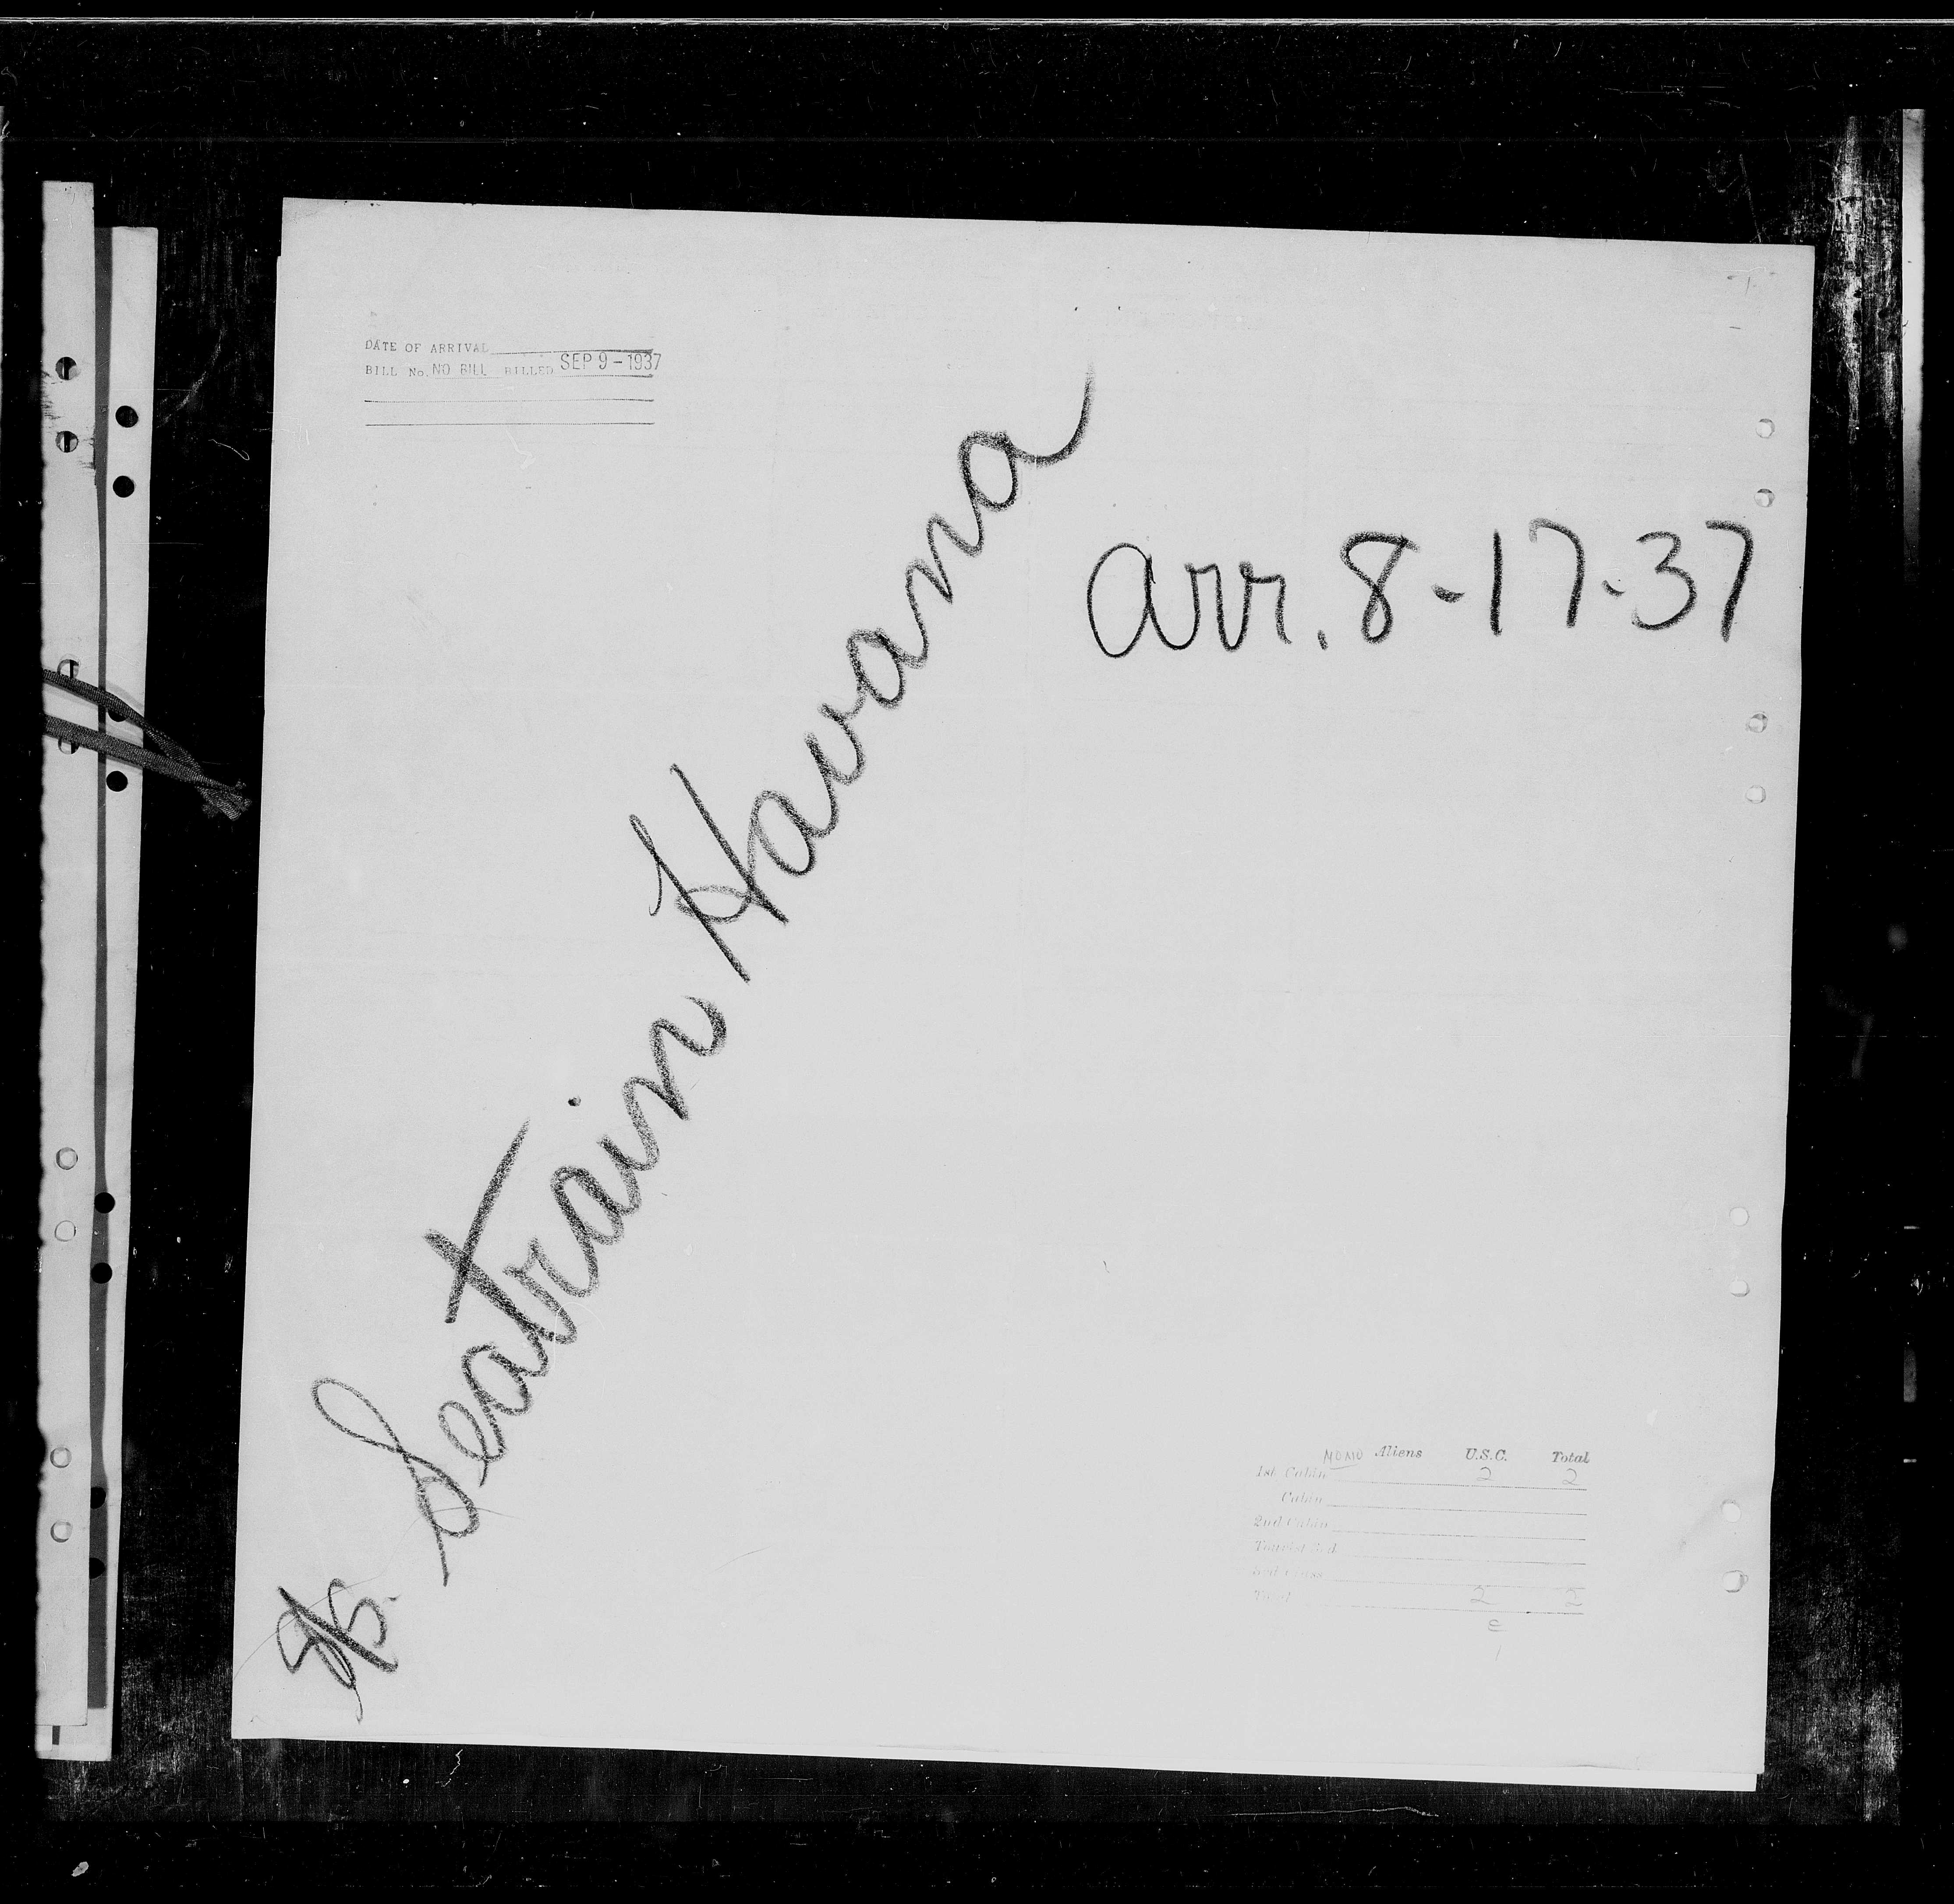 DATE OF ARRIVAL
BILL No. NO BILL BILLED SEP 9-1937
arr. 8-17-37
S/S. Seatrain Havana
Aliens U.S.C. Total
1st Cabin 2 2
Cabin
2nd Cabin
Tourist 3rd
Total 2 2